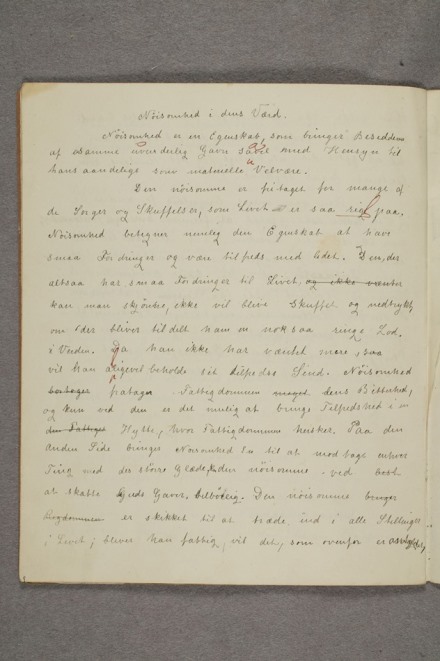 Nöisomhed i dens Værd.
Nöisomhed er en Egenskab, som bringer Besidderen
af samme uvurderlig Gavn saavel med Hensyn til
hans aandelige som materielle Velvære.
Den nöisomme er fritaget for mange af
de Sorger og Skuffelser, som Livet er saa rigt paa.
Nöisomhed betegner nemlig den Egenskab at have
smaa Fordringer og være tilfreds med lidet. Den, der
altsaa har smaa Fordringer til Livet, og ikke venter
kan man skjönne, ikke vil blive skuffet og nedtrykt,
om der bliver tildelt ham en nok saa ringe Lod
i Verden. Da han ikke har ventet mere, saa
vil han alligevel beholde sit tilfredse Sind. Nöisomhed
betager fratager Fattigdommen meget dens Bitterhed,
og kun ved den er det mulig at bringe Tilfredshed i en
den Fattiges Hytte, hvor Fattigdommen hersker. Paa den
anden Side bringer Nöisomhed En til at modtage enhver
Ting med des större Glæde, den nöisomme ved bedst
at skatte Guds Gaver. Den nöisomme
er skikket til at træde ind i alle Stillinger
i Livet; bliver han fattig, vil det, som ovenfor er